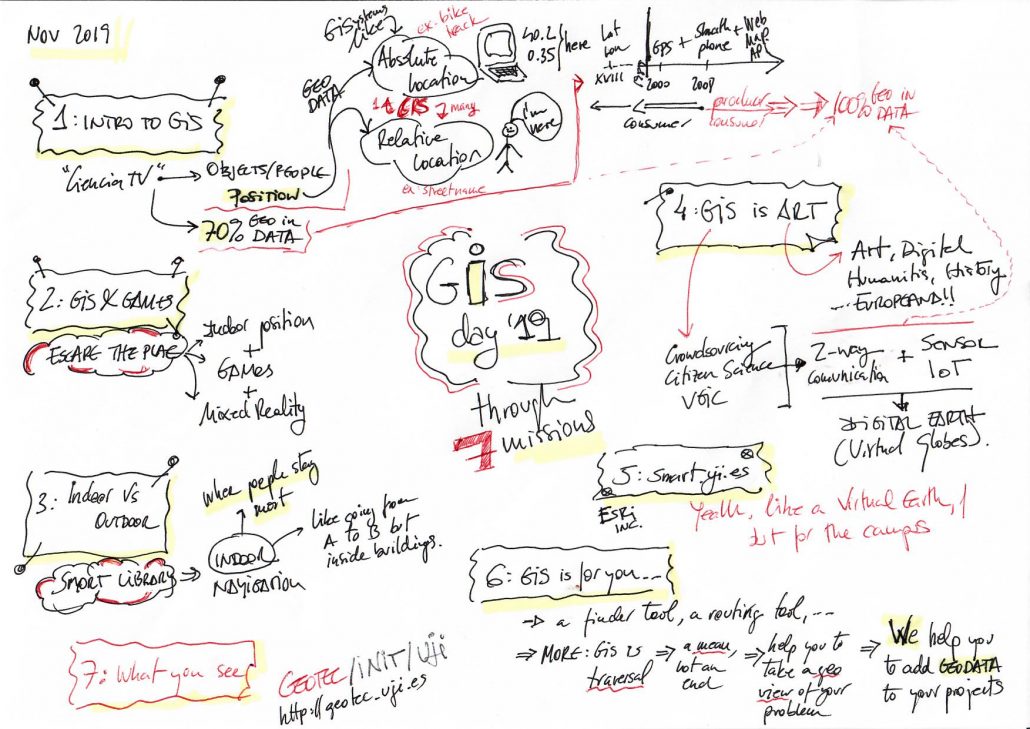 NOV 2019
1: INTRO TO GIS
"Ciencia TV"
OBJECTS/PEOPLE
POSITION
70% GEO in
DATA
GEO
DATA
GISystems
Like
ex. bike
track
Absolute
Location
GIS
many
Relative
Location
ex: streetname
I'm
here
40.2
0.35
here
Lat
Lon
XVIII
GPS + Smart + Web
phone
Map
API
2000
2008
consumer
producer
consumer
100% GEO IN
DATA
2: GIS & GAMES
ESCAPE THE PLACE
Indoor position
+
GAMES
+
Mixed Reality
GiS
day '19
through
7 missions
4: GiS is ART
Art, Digital
Humanitis, History
... EUROPEANA!!
Crowdsourcing
Citizen Science
VGIC
2-way
comunication
+ SENSOR
IoT
DIGITAL EARTH
(Virtual Globes).
3: Indoor Vs
OUTDOOR
SMART LIBRARY
INDOOR
NAVIGATION
Where people stay
most
Like going from
A to B but
inside buildings.
5: Smart.uji.es
ESRI
INC.
Yeahh, like a Virtual Earth,
but for the campus
6: GiS is for you...
→ a finder tool, a routing tool, ...
⇒ MORE: GIS is
traversal
⇒ a mean,
not an
end
⇒ help you to
take a geo
view of your
problem
⇒ We help you
to add GEODATA
to your projects
7: What you see
GEOTEC/INIT/UJI
http://geotec.uji.es